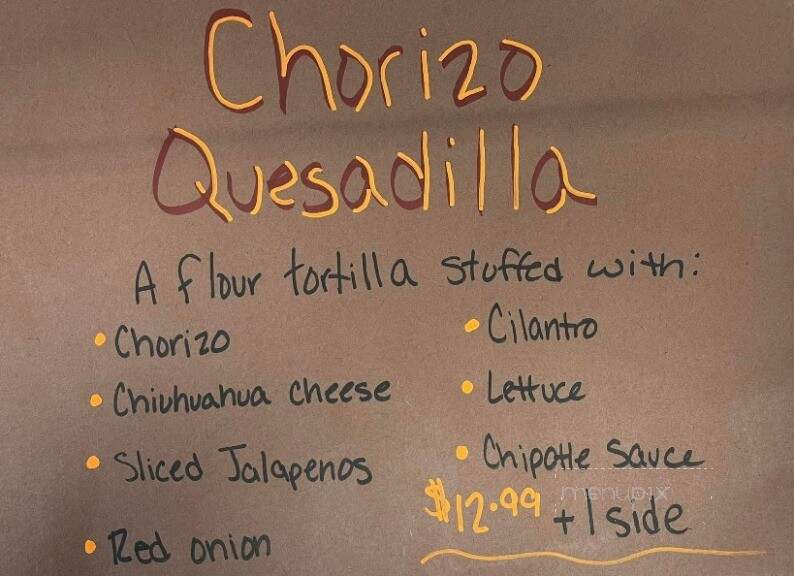 Chorizo
Quesadilla
A flour tortilla stuffed with:
• Chorizo
• Chiuhuahua cheese
• Sliced Jalapenos
• Red onion
• Cilantro
• Lettuce
• Chipotle sauce
$12.99 + 1 side
menupix